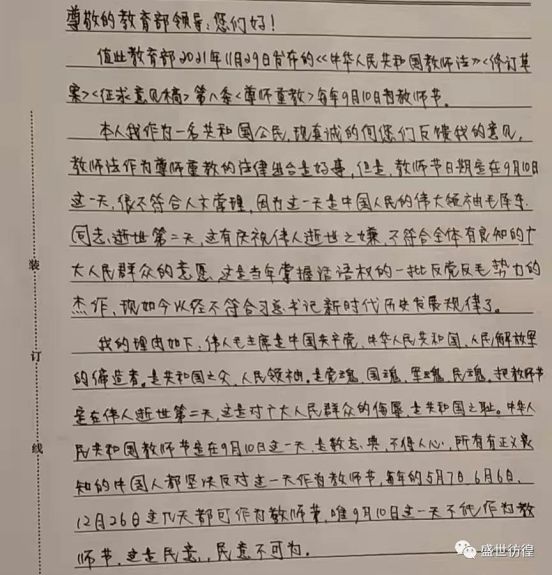 尊敬的教育部领导：您们好！
值此教育部2021年11月29日发布的<<中华人民共和国教师法>><修订草
案><征求意见稿>第八条<尊师重教>每年9月10日为教师节。
本人我作为一名共和国公民，现真诚的向您们反馈我的意见，
教师法作为尊师重教的法律组合是好事，但是，教师节日期定在9月10日
这一天，很不符合人文常理，因为这一天是中国人民的伟大领袖毛泽东
同志逝世第二天，这有庆祝伟人逝世之嫌，不符合全体有良知的广
大人民群众的意愿，这是当年掌握话语权的一批反党反毛势力的
杰作，现如今以经不符合习总书记新时代历史发展规律了。
我的理由如下：伟人毛主席是中国共产党、中华人民共和国、人民解放军
的缔造者。是共和国之父、人民领袖。是党魂、国魂、军魂、民魂，把教师节
定在伟人逝世第二天，这是对广大人民群众的侮辱，是共和国之耻。中华人
民共和国教师节定在9月10日这一天，是数典，不得人心，所有有正义良
知的中国人都坚决反对这一天作为教师节，每年的5月7日、6月6日、
12月26日这几天都可作为教师节，唯9月10日这一天不能作为教
师节，这是民意，民意不可为。
装
订
线
盛世彷徨